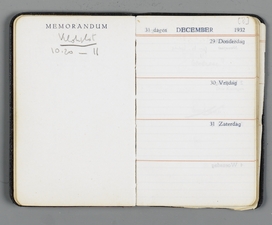 MEMORANDUM
10.20 — 11
31 dagen DECEMBER 1932
29 Donderdag
30 Vrijdag
31 Zaterdag